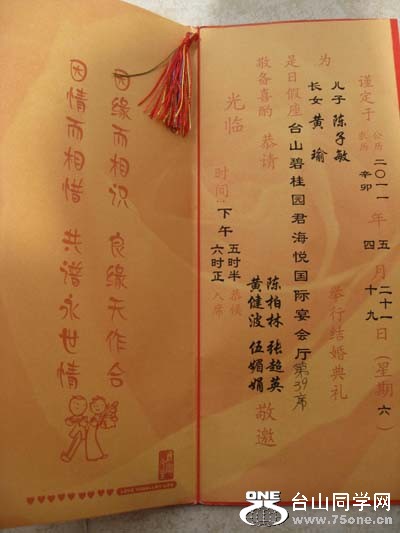 谨定于 公历 二〇一一 年 五 月 二十一 日(星期六)
农历 辛卯 四 十九
为 儿子 陈子敏
长女 黄瑜 举行结婚典礼
是日假座台山碧桂园君海悦国际宴会厅 第39席
敬备喜酌 恭请
陈柏林 张超英
黄健波 伍媚娟 敬邀
光临
时间:下午 五时半 恭候
六时正 入席
因缘而相识 良缘天作合
因情而相惜 共谱永世情
ONE 台山同学网
www.75one.cn